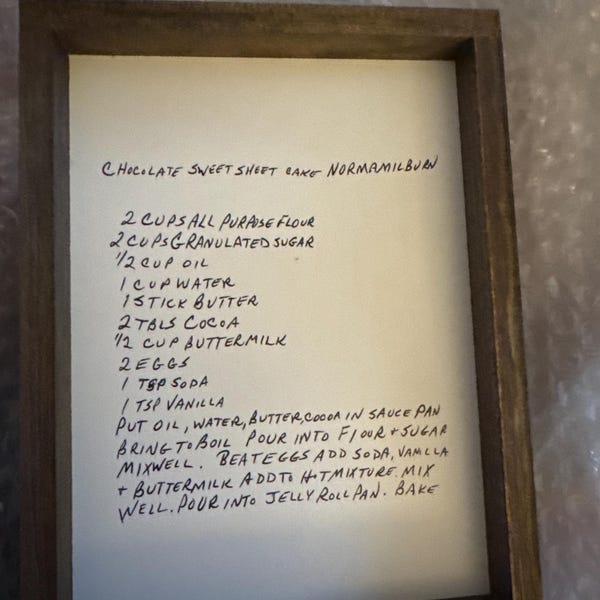 CHOCOLATE SWEET SHEET CAKE NORMAMILBURN
2 CUPS ALL PURPOSE FLOUR
2 CUPS GRANULATED SUGAR
1/2 CUP OIL
1 CUP WATER
1 STICK BUTTER
2 TBLS COCOA
1/2 CUP BUTTERMILK
2 EGGS
1 TSP SODA
1 TSP VANILLA
PUT OIL, WATER, BUTTER, COCOA IN SAUCE PAN
BRING TO BOIL POUR INTO FLOUR + SUGAR
MIX WELL. BEAT EGGS ADD SODA, VANILLA
+ BUTTERMILK ADD TO HOT MIXTURE. MIX
WELL. POUR INTO JELLY ROLL PAN. BAKE